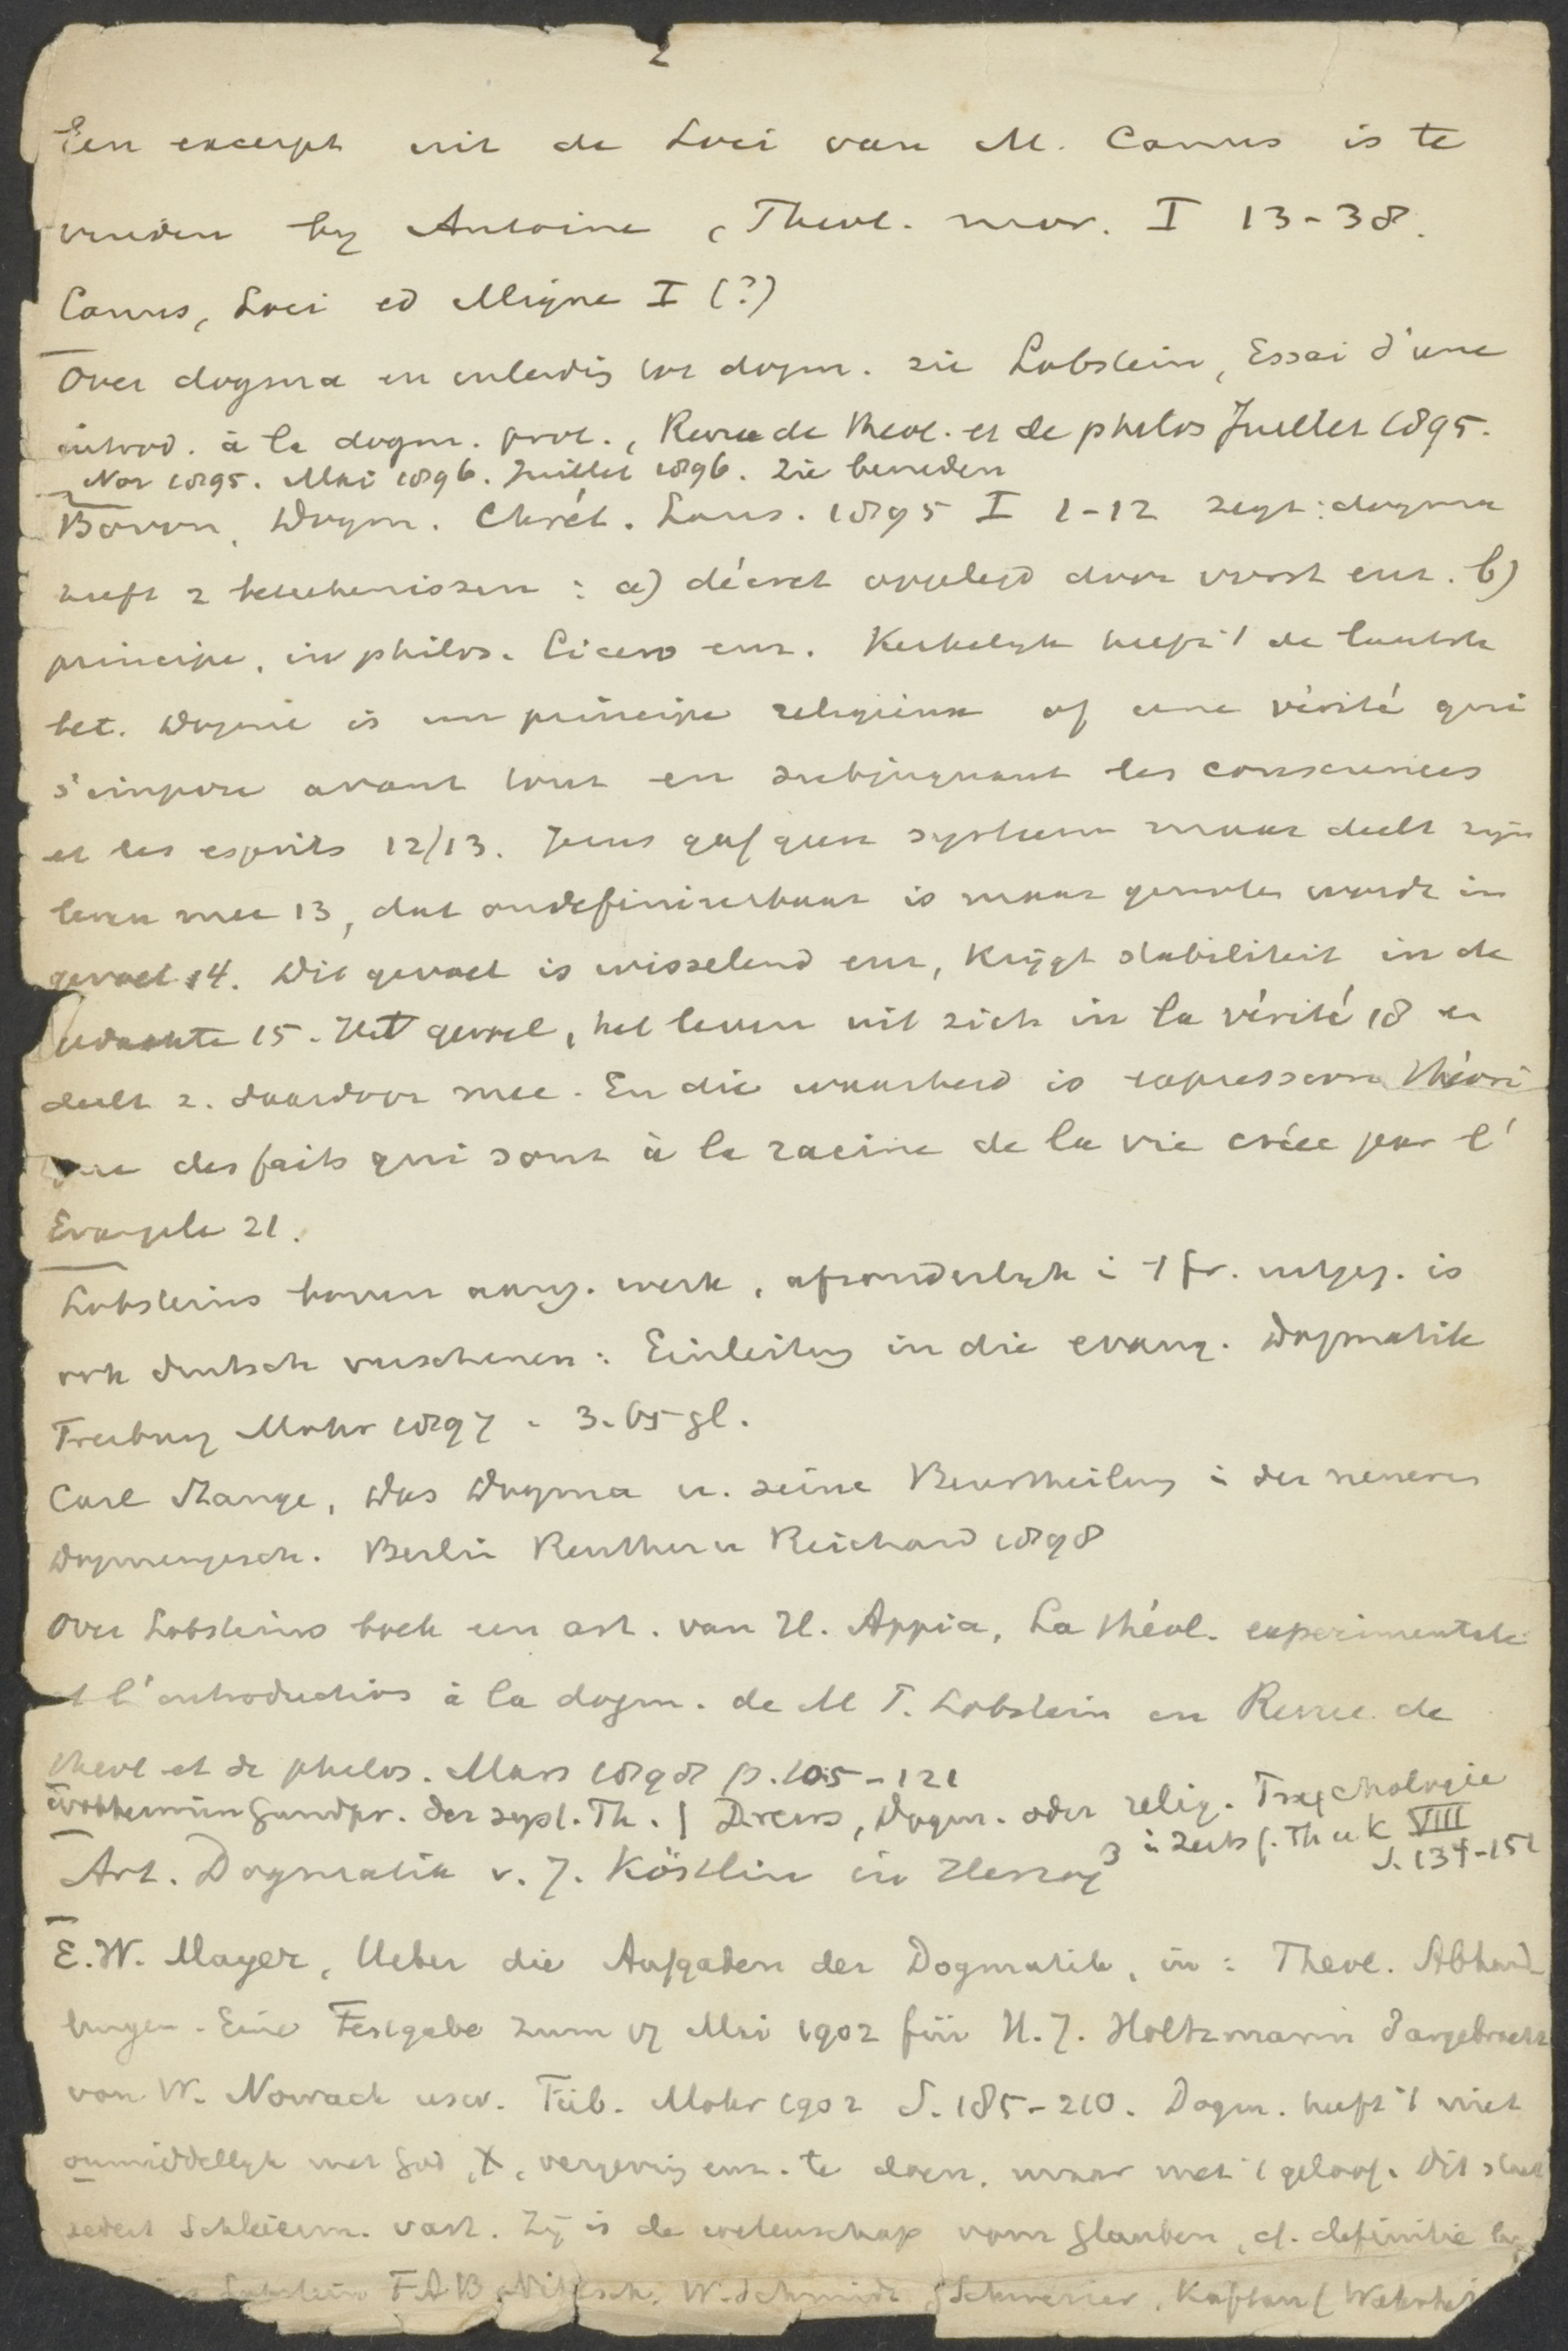 2
Een excerpt uit de Loci van M. Canus is te
vinden by Antoine, Theol. mor. I 13-38.
Canus, Loci ed Migne I (?)
Over dogma en inleidg tot dogm. zie Lobstein, Essai d'une
introd. à la dogm. prot., Revue de theol. et de philos Juillet 1895.
Nov 1895. Mai 1896. Juillet 1896. Zie beneden
Bovon, Dogm. Chrét. Laus. 1895 I 1-12 zegt: dogma
heeft 2 beteekenissen: a) décret opgelegd door vorst enz. b)
principe, in philos. Cicero enz. Kerkelyk heeft 't de laatste
bet. Dogme is un principe religieux of une vérité qui
s'impose avant tout en subjuguant les consciences
et les esprits 12/13. Jezus gaf geen systeem maar deelt zyn
leven mee 13, dat ondefinieerbaar is maar genoten wordt in
gevoel 14. Dit gevoel is wisselend enz, krijgt stabiliteit in de
gedachte 15. Het gevoel, het leven uit zich in la vérité 18 en
deelt z. daardoor mee. En die waarheid is expression théori
que des faits qui sont à la racine de la vie créée par l'
Evangile 21.
Lobsteins boven aang. werk, afzonderlyk i 't fr. uitgeg. is
ook duitsch verschenen: Einleitung in die evang. Dogmatik
Freiburg Mohr 1897. 3.65 gl.
Carl Stange, Das Dogma u. seine Beurtheilung i der neueren
Dogmengesch. Berlin Reuther u Reichard 1898
Over Lobsteins boek een art. van H. Appia, La théol. experimentale
et l'introduction à la dogm. de M T. Lobstein en Revue de
theol et de philos. Mars 1898 p. 105-121
Wobbermin Grundpr. der syst. Th. | Drews, Dogm. oder relig. Psychologie
i Zeits f. Th u. K VIII
S. 134-151
Art. Dogmatik v. J. Köstlin in Herzog 3
E.W. Mayer, Ueber die Aufgaben der Dogmatik, in: Theol. Abhand-
lungen. Eine Festgabe zum 17 Mai 1902 für H. J. Holtzmann dargebracht
von W. Nowack usw. Tüb. Mohr 1902 S. 185-210. Dogm. heeft 't niet
onmiddellyk met God, X, vergeving enz. te doen, maar met 't geloof. Dit staat
sedert Schleierm. vast. Zij is de wetenschap vom Glauben, cf. definitie by
Lobstein F A B Nitzsch, W. Schmidt, Kaftan (Wahrheit